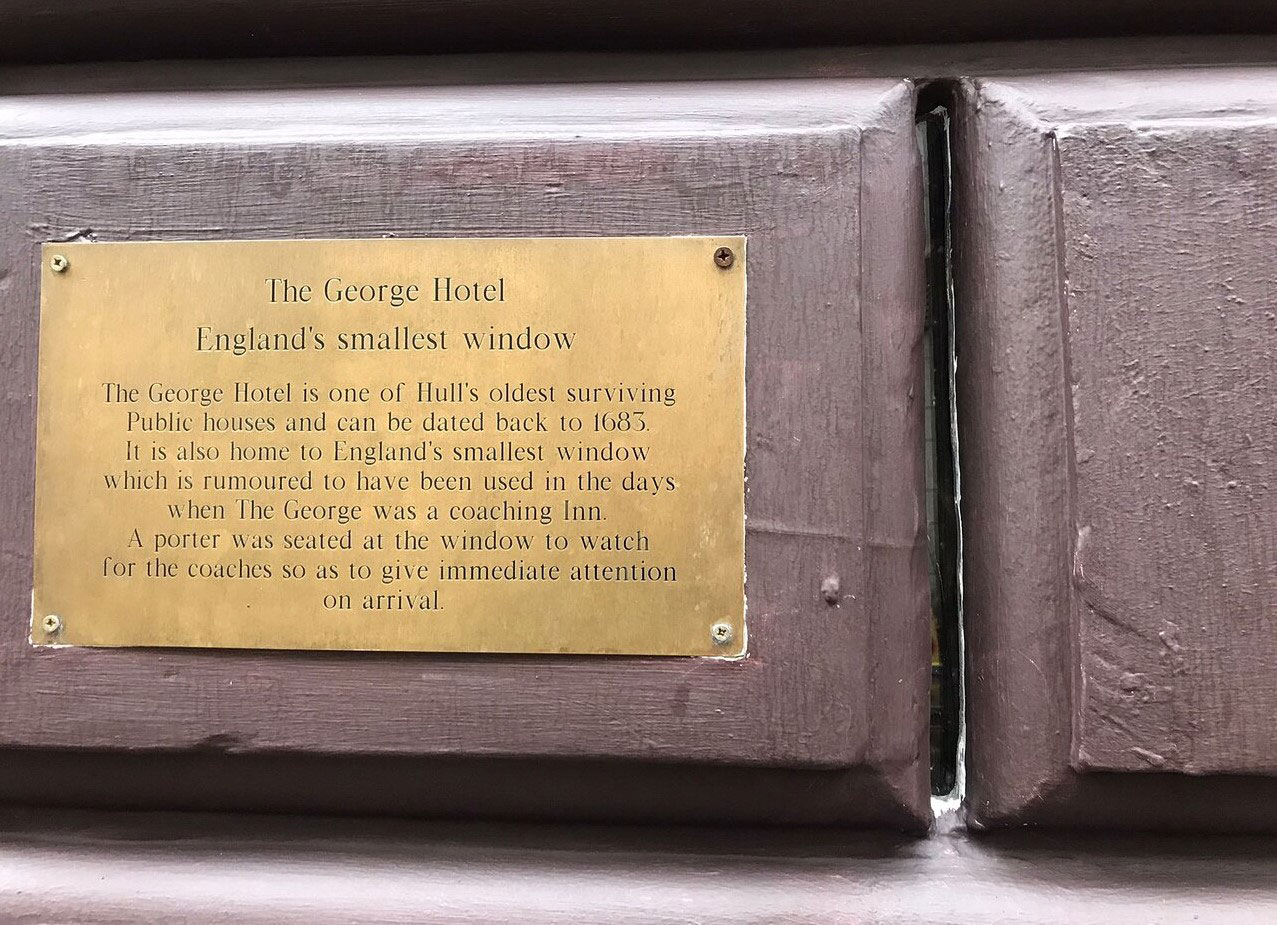 The George Hotel
England's smallest window
The George Hotel is one of Hull's oldest surviving
Public houses and can be dated back to 1683.
It is also home to England's smallest window
which is rumoured to have been used in the days
when The George was a coaching Inn.
A porter was seated at the window to watch
for the coaches so as to give immediate attention
on arrival.